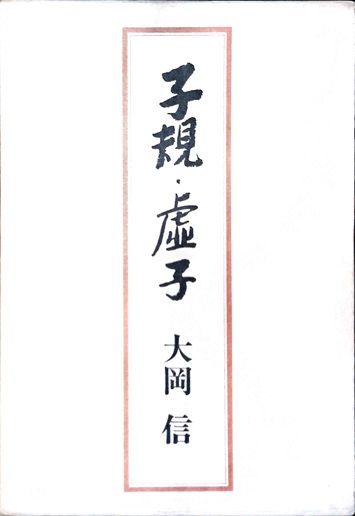 子規・虚子
大岡信